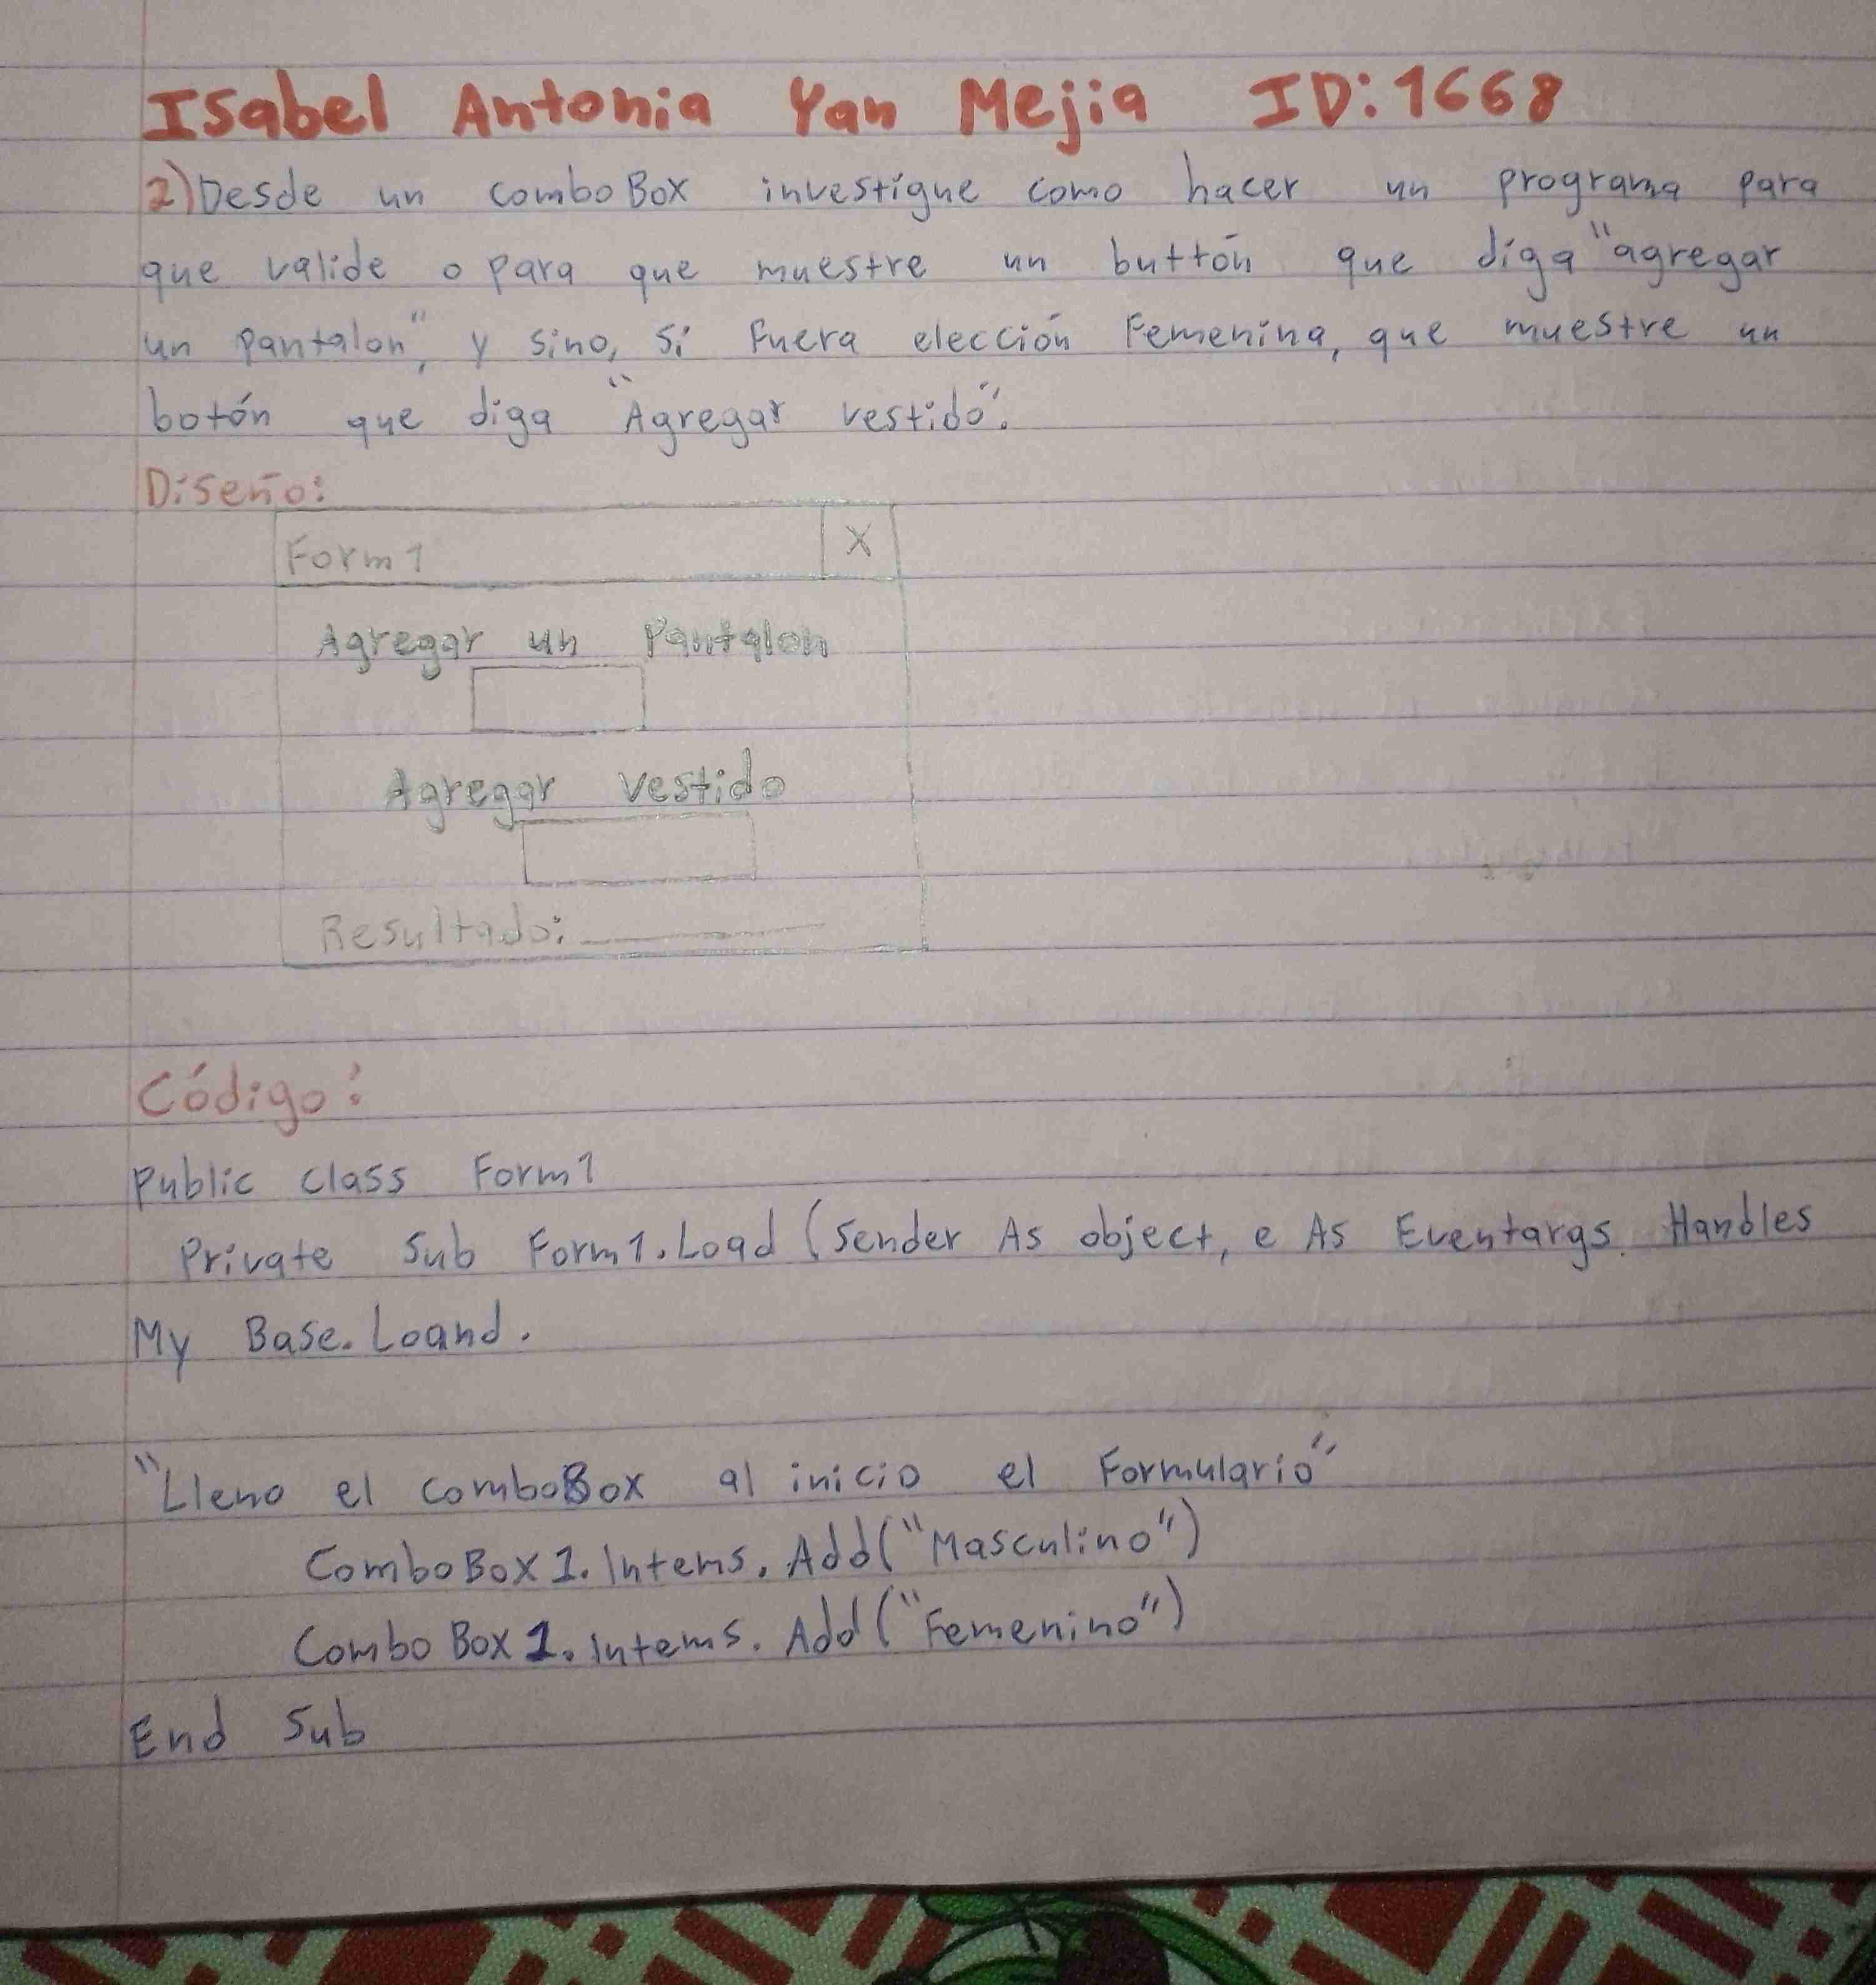 Isabel Antonia Yan Mejia ID:1668
2) Desde un comboBox investigue como hacer un programa para
que valide o para que muestre un buttón que diga "agregar
un Pantalon", y sino, si fuera elección Femenina, que muestre un
botón que diga "Agregar vestido".
Diseño:
Form1 X
Agregar un Pantalon
Agregar vestido
Resultado:
Código:
Public class Form1
Private Sub Form1.Load (Sender As object, e As Eventargs. Handles
My Base.Loand.
"Lleno el comboBox al inicio el Formulario"
ComboBox1.Intems.Add("Masculino")
ComboBox1.Intems.Add("Femenino")
End Sub